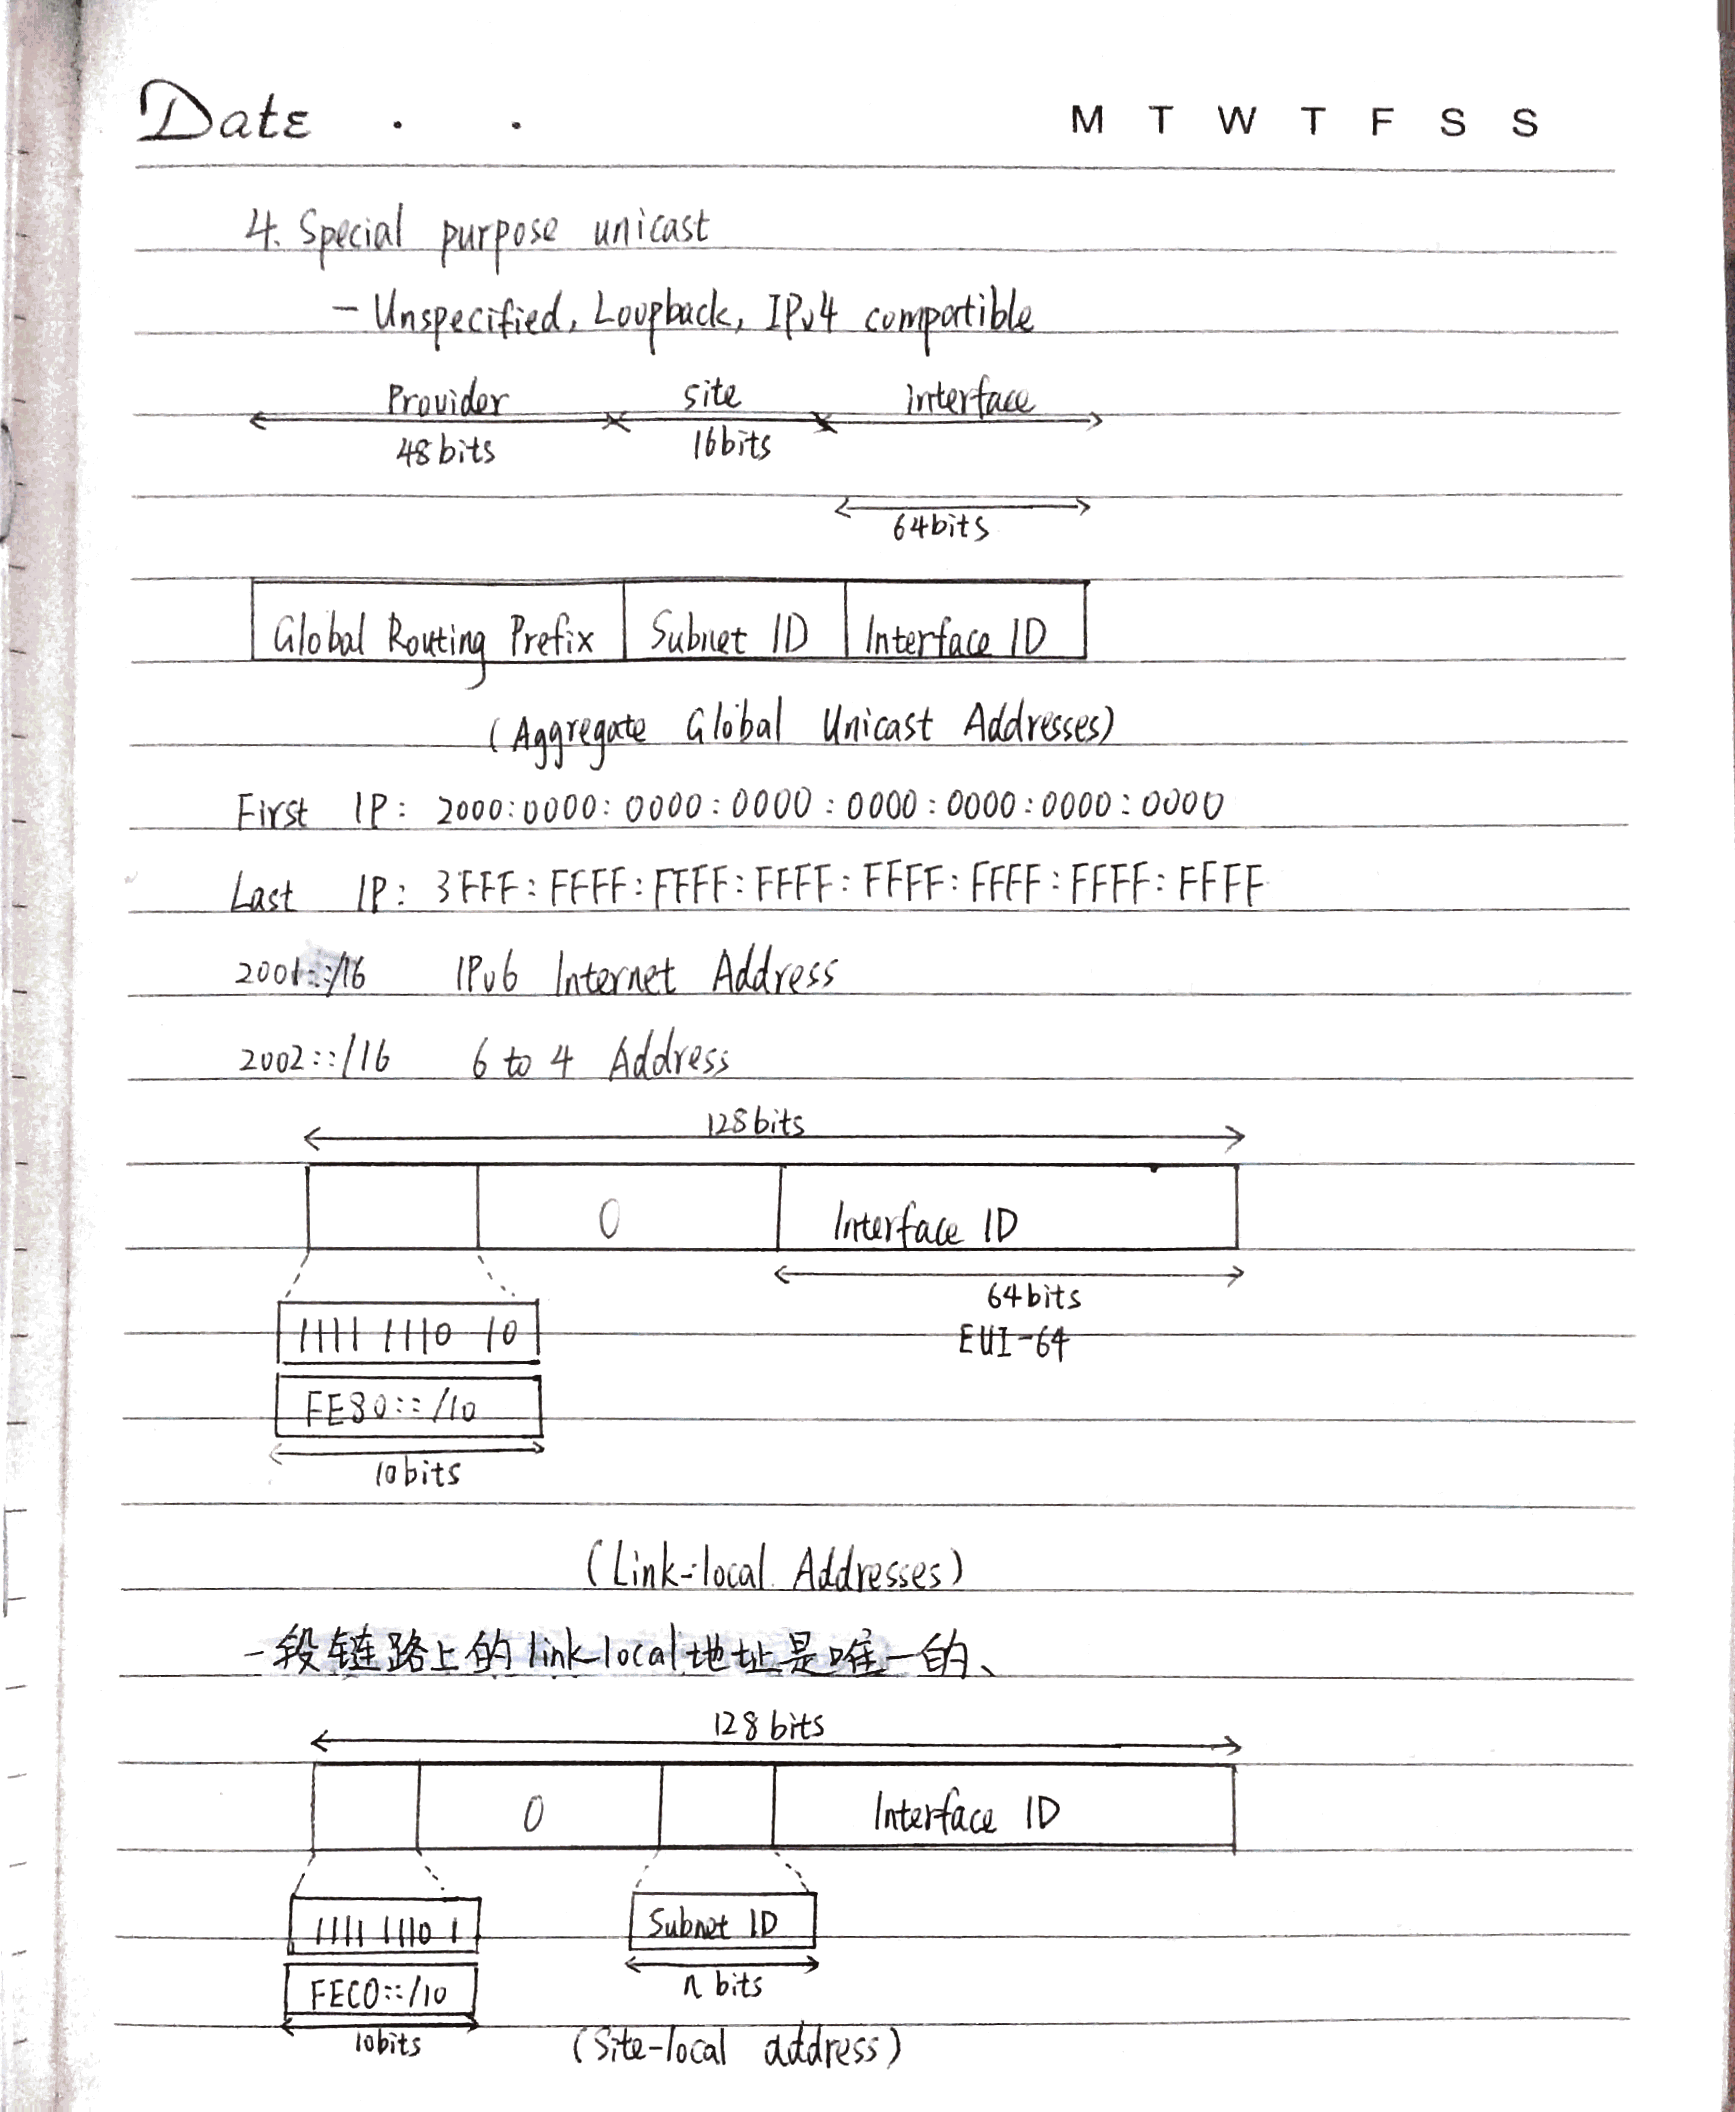 Date . .
M T W T F S S
4. Special purpose unicast
- Unspecified, Loopback, IPv4 compartible
Provider site interface
48bits 16bits
64bits
Global Routing Prefix Subnet ID Interface ID
(Aggregate Global Unicast Addresses)
First IP: 2000:0000:0000:0000:0000:0000:0000:0000
Last IP: 3FFF:FFFF:FFFF:FFFF:FFFF:FFFF:FFFF:FFFF
2001::/16 IPv6 Internet Address
2002::/16 6 to 4 Address
128bits
0 Interface ID
64bits
1111 1110 10 EUI-64
FE80::/10
10bits
(Link-local Addresses)
一段链路上的link local地址是唯一的、
128 bits
0 Interface ID
1111 1110 1 Subnet ID
FEC0::/10 n bits
10bits (Site-local address)